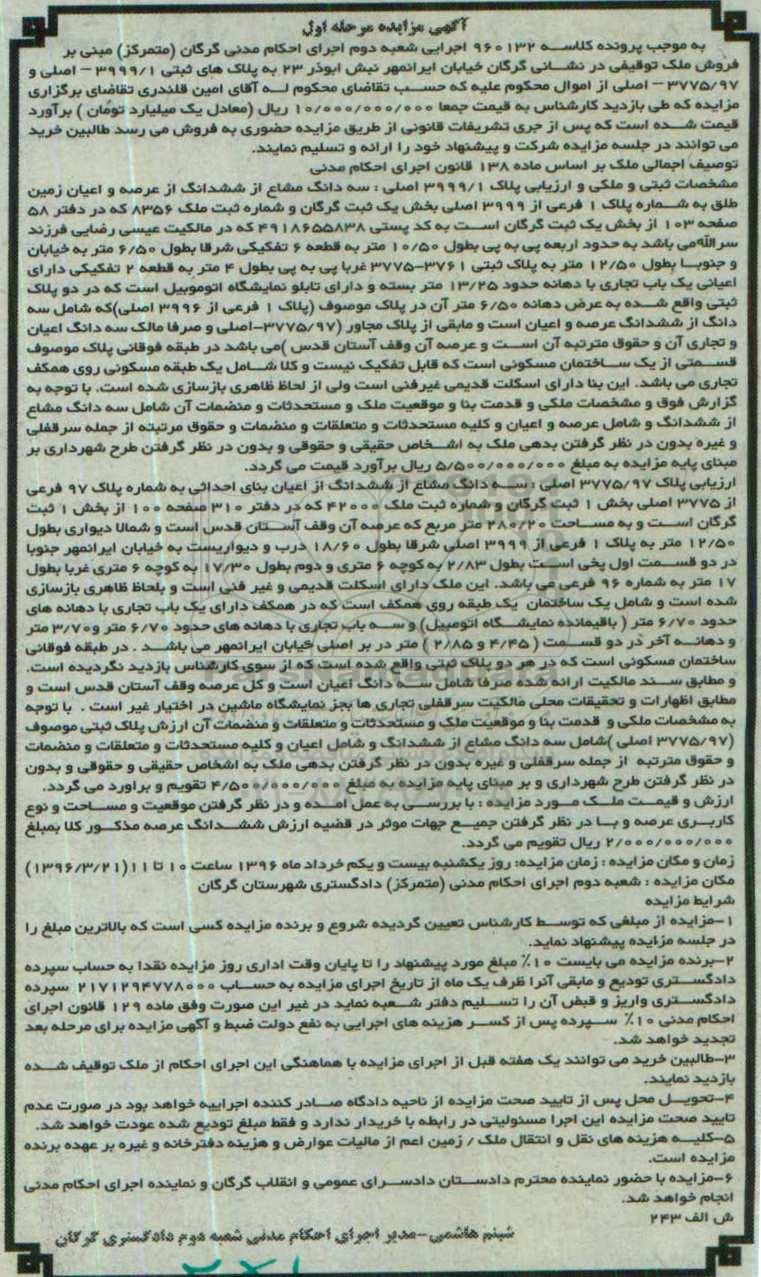 آگهی مزایده مرحله اول
به موجب پرونده کلاسه ۹۶۰۱۳۲ اجرایی شعبه دوم اجرای احکام مدنی گرگان (متمرکز) مبنی بر
فروش ملک توقیفی در نشانی گرگان خیابان ایرانمهر نبش ابوذر ۲۳ به پلاک های ثبتی ۳۹۹۹/۱ – اصلی و
۳۷۷۵/۹۷ – اصلی از اموال محکوم علیه که حسب تقاضای محکوم له آقای امین قلندری تقاضای برگزاری
مزایده که طی بازدید کارشناس به قیمت جمعا ۱۰/۰۰۰/۰۰۰/۰۰۰ ریال (معادل یک میلیارد تومان ) برآورد
قیمت شده است که پس از جری تشریفات قانونی از طریق مزایده حضوری به فروش می رسد طالبین خرید
می توانند در جلسه مزایده شرکت و پیشنهاد خود را ارائه و تسلیم نمایند.
توصیف اجمالی ملک بر اساس ماده ۱۳۸ قانون اجرای احکام مدنی
مشخصات ثبتی و ملکی و ارزیابی پلاک ۳۹۹۹/۱ اصلی : سه دانگ مشاع از ششدانگ از عرصه و اعیان زمین
طلق به شماره پلاک ۱ فرعی از ۳۹۹۹ اصلی بخش یک ثبت گرگان و شماره ثبت ملک ۸۳۵۶ که در دفتر ۵۸
صفحه ۱۰۳ از بخش یک ثبت گرگان است به کد پستی ۴۹۱۸۶۵۵۸۳۸ که در مالکیت عیسی رضایی فرزند
سرالله می باشد به حدود اربعه پی به پی بطول ۱۰/۵۰ متر به قطعه ۶ تفکیکی شرقا بطول ۶/۵۰ متر به خیابان
و جنوبا بطول ۱۲/۵۰ متر به پلاک ثبتی ۳۷۶۱–۳۷۷۵ غربا پی به پی بطول ۴ متر به قطعه ۲ تفکیکی دارای
اعیانی یک باب تجاری با دهانه حدود ۱۳/۲۵ متر بسته و دارای تابلو نمایشگاه اتوموبیل است که در دو پلاک
ثبتی واقع شده به عرض دهانه ۶/۵۰ متر آن در پلاک موصوف (پلاک ۱ فرعی از ۳۹۹۶ اصلی)که شامل سه
دانگ از ششدانگ عرصه و اعیان است و مابقی از پلاک مجاور (۳۷۷۵/۹۷–اصلی و صرفا مالک سه دانگ اعیان
و تجاری آن و حقوق مترتبه آن است و عرصه آن وقف آستان قدس )می باشد در طبقه فوقانی پلاک موصوف
قسمتی از یک ساختمان مسکونی است که قابل تفکیک نیست و کلا شامل یک طبقه مسکونی روی همکف
تجاری می باشد. این بنا دارای اسکلت قدیمی غیرفنی است ولی از لحاظ ظاهری بازسازی شده است. با توجه به
گزارش فوق و مشخصات ملکی و قدمت بنا و موقعیت ملک و مستحدثات و منضمات آن شامل سه دانگ مشاع
از ششدانگ و شامل عرصه و اعیان و کلیه مستحدثات و متعلقات و منضمات و حقوق مرتبته از جمله سرقفلی
و غیره بدون در نظر گرفتن بدهی ملک به اشخاص حقیقی و حقوقی و بدون در نظر گرفتن طرح شهرداری بر
مبنای پایه مزایده به مبلغ ۵/۵۰۰/۰۰۰/۰۰۰ ریال برآورد قیمت می گردد.
ارزیابی پلاک ۳۷۷۵/۹۷ اصلی : سه دانگ مشاع از ششدانگ از اعیان بنای احداثی به شماره پلاک ۹۷ فرعی
از ۳۷۷۵ اصلی بخش ۱ ثبت گرگان و شماره ثبت ملک ۴۲۰۰۰ که در دفتر ۳۱۰ صفحه ۱۰۰ از بخش ۱ ثبت
گرگان است و به مساحت ۲۸۰/۲۰ متر مربع که عرصه آن وقف آستان قدس است و شمالا دیواری بطول
۱۲/۵۰ متر به پلاک ۱ فرعی از ۳۹۹۹ اصلی شرقا بطول ۱۸/۶۰ درب و دیواریست به خیابان ایرانمهر جنوبا
در دو قسمت اول یخی است بطول ۲/۸۳ به کوچه ۶ متری و دوم بطول ۱۷/۳۰ به کوچه ۶ متری غربا بطول
۱۷ متر به شماره ۹۶ فرعی می باشد. این ملک دارای اسکلت قدیمی و غیر فنی است و بلحاظ ظاهری بازسازی
شده است و شامل یک ساختمان یک طبقه روی همکف است که در همکف دارای یک باب تجاری با دهانه های
حدود ۶/۷۰ متر ( باقیمانده نمایشگاه اتومبیل) و سه باب تجاری با دهانه های حدود ۶/۷۰ متر و ۳/۷۰ متر
و دهانه آخر در دو قسمت ( ۴/۴۵ و ۲/۸۵ ) متر در بر اصلی خیابان ایرانمهر می باشد . در طبقه فوقانی
ساختمان مسکونی است که در هر دو پلاک ثبتی واقع شده است که از سوی کارشناس بازدید نگردیده است.
و مطابق سند مالکیت ارائه شده صرفا شامل سه دانگ اعیان است و کل عرصه وقف آستان قدس است و
مطابق اظهارات و تحقیقات محلی مالکیت سرقفلی تجاری ها بجز نمایشگاه ماشین در اختیار غیر است . با توجه
به مشخصات ملکی و قدمت بنا و موقعیت ملک و مستحدثات و متعلقات و منضمات آن ارزش پلاک ثبتی موصوف
(۳۷۷۵/۹۷ اصلی )شامل سه دانگ مشاع از ششدانگ و شامل اعیان و کلیه مستحدثات و متعلقات و منضمات
و حقوق مترتبه از جمله سرقفلی و غیره بدون در نظر گرفتن بدهی ملک به اشخاص حقیقی و حقوقی و بدون
در نظر گرفتن طرح شهرداری و بر مبنای پایه مزایده به مبلغ ۴/۵۰۰/۰۰۰/۰۰۰ تقویم و براورد می گردد.
ارزش و قیمت ملک مورد مزایده : با بررسی به عمل آمده و در نظر گرفتن موقعیت و مساحت و نوع
کاربری عرصه و با در نظر گرفتن جمیع جهات موثر در قضیه ارزش ششدانگ عرصه مذکور کلا بمبلغ
۲/۰۰۰/۰۰۰/۰۰۰ ریال تقویم می گردد.
زمان و مکان مزایده : زمان مزایده: روز یکشنبه بیست و یکم خرداد ماه ۱۳۹۶ ساعت ۱۰ تا ۱۱(۱۳۹۶/۳/۲۱)
مکان مزایده : شعبه دوم اجرای احکام مدنی (متمرکز) دادگستری شهرستان گرگان
شرایط مزایده
۱–مزایده از مبلغی که توسط کارشناس تعیین گردیده شروع و برنده مزایده کسی است که بالاترین مبلغ را
در جلسه مزایده پیشنهاد نماید.
۲–برنده مزایده می بایست ۱۰٪ مبلغ مورد پیشنهاد را تا پایان وقت اداری روز مزایده نقدا به حساب سپرده
دادگستری تودیع و مابقی آنرا ظرف یک ماه از تاریخ اجرای مزایده به حساب ۲۱۷۱۲۹۴۷۷۸۰۰۰ سپرده
دادگستری واریز و قبض آن را تسلیم دفتر شعبه نماید در غیر این صورت وفق ماده ۱۲۹ قانون اجرای
احکام مدنی ۱۰٪ سپرده پس از کسر هزینه های اجرایی به نفع دولت ضبط و آگهی مزایده برای مرحله بعد
تجدید خواهد شد.
۳–طالبین خرید می توانند یک هفته قبل از اجرای مزایده با هماهنگی این اجرای احکام از ملک توقیف شده
بازدید نمایند.
۴–تحویل محل پس از تایید صحت مزایده از ناحیه دادگاه صادر کننده اجراییه خواهد بود در صورت عدم
تایید صحت مزایده این اجرا مسئولیتی در رابطه با خریدار ندارد و فقط مبلغ تودیع شده عودت خواهد شد.
۵–کلیه هزینه های نقل و انتقال ملک / زمین اعم از مالیات عوارض و هزینه دفترخانه و غیره بر عهده برنده
مزایده است.
۶–مزایده با حضور نماینده محترم دادستان دادسرای عمومی و انقلاب گرگان و نماینده اجرای احکام مدنی
انجام خواهد شد.
ش الف ۲۴۳
شبنم هاشمی–مدیر اجرای احکام مدنی شعبه دوم دادگستری گرگان